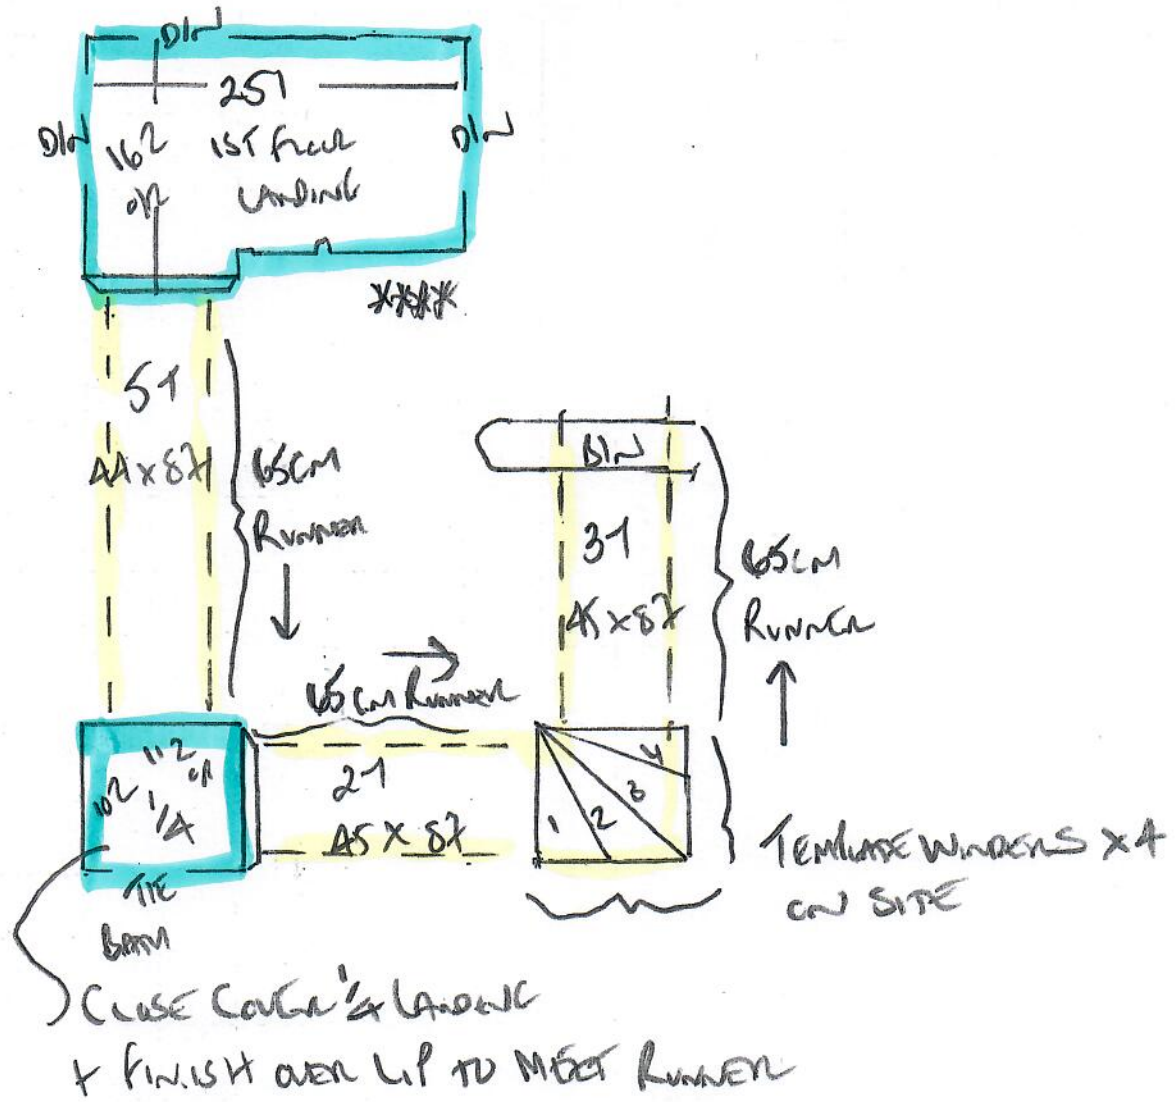 DIN
251
DIN
162
O/L
1ST FLOOR
LANDING
DIN
****
51
44 x 87
65CM
RUNNER
BIN
31
45 x 87
65CM
RUNNER
65CM RUNNER
112
O/L
102
1/4
21
45 X 87
1
2
3
4
TEMPLATE WINDERS X 4
ON SITE
TIE
CLOSE COVER 1/4 LANDING
+ FINISH OVER LIP TO MEET RUNNER